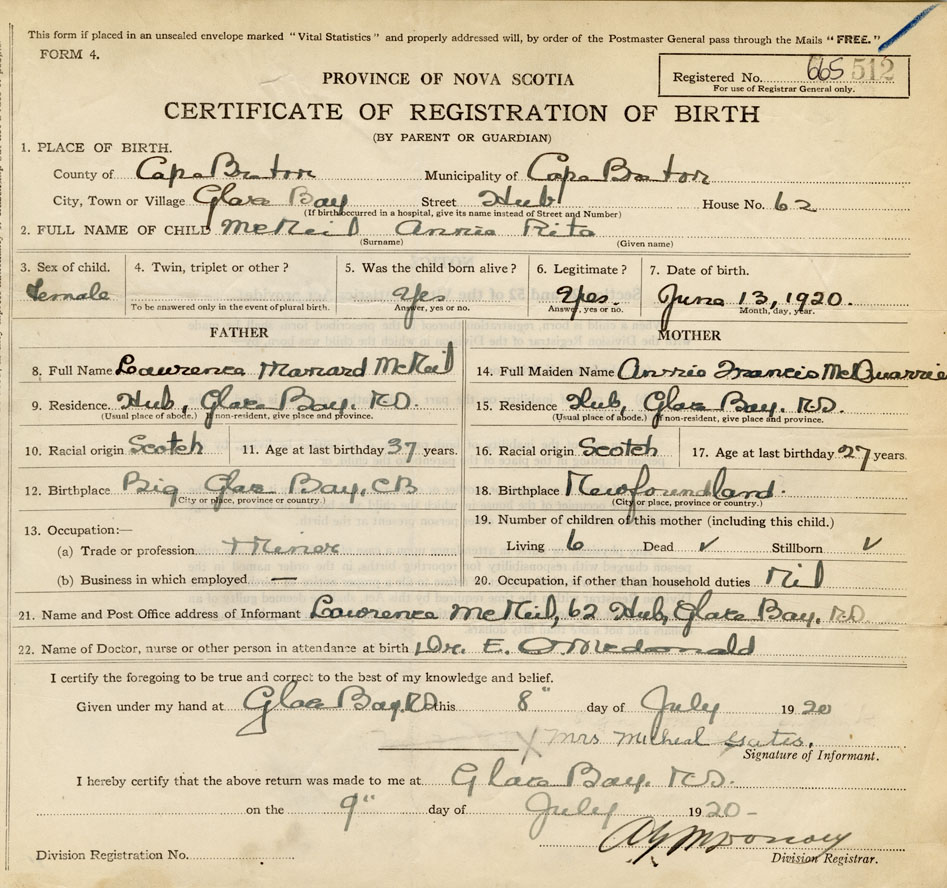 This form if placed in an unsealed envelope marked "Vital Statistics" and properly addressed will, by order of the Postmaster General pass through the Mails "FREE."
FORM 4.
Registered No. 665 512
For use of Registrar General only.
PROVINCE OF NOVA SCOTIA
CERTIFICATE OF REGISTRATION OF BIRTH
(BY PARENT OR GUARDIAN)
1. PLACE OF BIRTH.
County of Cape Breton Municipality of Cape Breton
City, Town or Village Glace Bay Street Hub House No. 62
(If birth occurred in a hospital, give its name instead of Street and Number)
2. FULL NAME OF CHILD McNeil Annie Rita
(Surname) (Given name)
3. Sex of child. 4. Twin, triplet or other? 5. Was the child born alive? 6. Legitimate? 7. Date of birth.
Female Yes Yes. June 13, 1920.
To be answered only in the event of plural birth. Answer, yes or no. Answer, yes or no. Month, day, year.
FATHER MOTHER
8. Full Name Lawrence Manard McNeil 14. Full Maiden Name Annie Francis McQuarrie
9. Residence. Hub, Glace Bay. N.S. 15. Residence Hub, Glace Bay. N.S.
(Usual place of abode.) If non-resident, give place and province. (Usual place of abode.) If non-resident, give place and province.
10. Racial origin Scotch 11. Age at last birthday 37 years. 16. Racial origin Scotch 17. Age at last birthday 27 years.
12. Birthplace Big Glace Bay, CB 18. Birthplace Newfoundland.
(City or place, province or country.) (City or place, province or country.)
13. Occupation:— 19. Number of children of this mother (including this child.)
(a) Trade or profession Miner Living 6 Dead ✓ Stillborn ✓
(b) Business in which employed — 20. Occupation, if other than household duties Nil
21. Name and Post Office address of Informant Lawrence McNeil, 62 Hub, Glace Bay. N.S.
22. Name of Doctor, nurse or other person in attendance at birth Dr. E. O McDonald
I certify the foregoing to be true and correct to the best of my knowledge and belief.
Given under my hand at Glace Bay. N.S. this 8" day of July 1920
X Mrs Micheal Yates.
Signature of Informant.
I hereby certify that the above return was made to me at Glace Bay. N.S.
on the 9" day of July 1920-
Division Registration No.
Division Registrar.